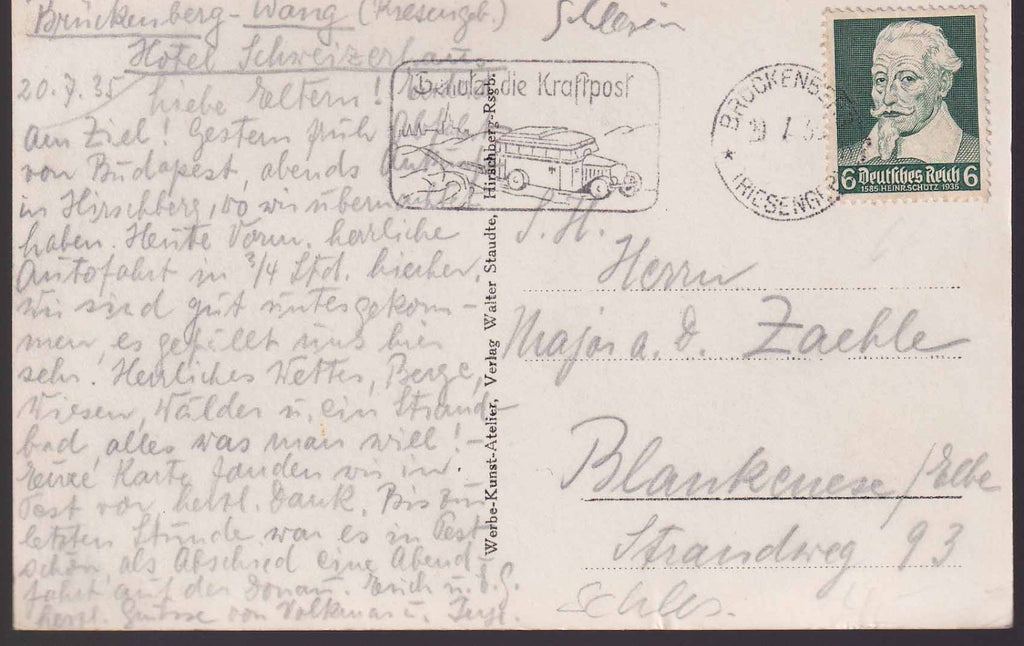 Brückenberg-Wang (Riesengeb.) Schlesien
Hotel Schweizerhaus
20.7.35 Liebe Eltern! Endlich
am Ziel! Gestern früh Abfahrt
von Budapest, abends Ankunft
in Hirschberg, wo wir übernachtet
haben. Heute Vorm. herrliche
Autofahrt in 3/4 Std. hierher.
Wir sind gut untergekom-
men, es gefällt uns hier
sehr. Herrliches Wetter, Berge,
Wiesen, Wälder u. ein Strand-
bad, alles was man will! -
Eure Karte fanden wir in
Pest vor, herzl. Dank. Bis zur
letzten Stunde war es in Pest
schön, als Abschied eine Abend-
fahrt auf der Donau. Euch u.
herzl. Grüsse von Volkmar u. Inge.
Werbe-Kunst-Atelier, Verlag Walter Staudte, Hirschberg-Rsgb.
Benutzt die Kraftpost
BRÜCKENBERG
(RIESENGEB)
6 Deutsches Reich 6
1585 HEINR.SCHÜTZ 1935
S. H.
Herrn
Major a. D. Zaehle
Blankenese/Elbe
Strandweg 93
Schles.